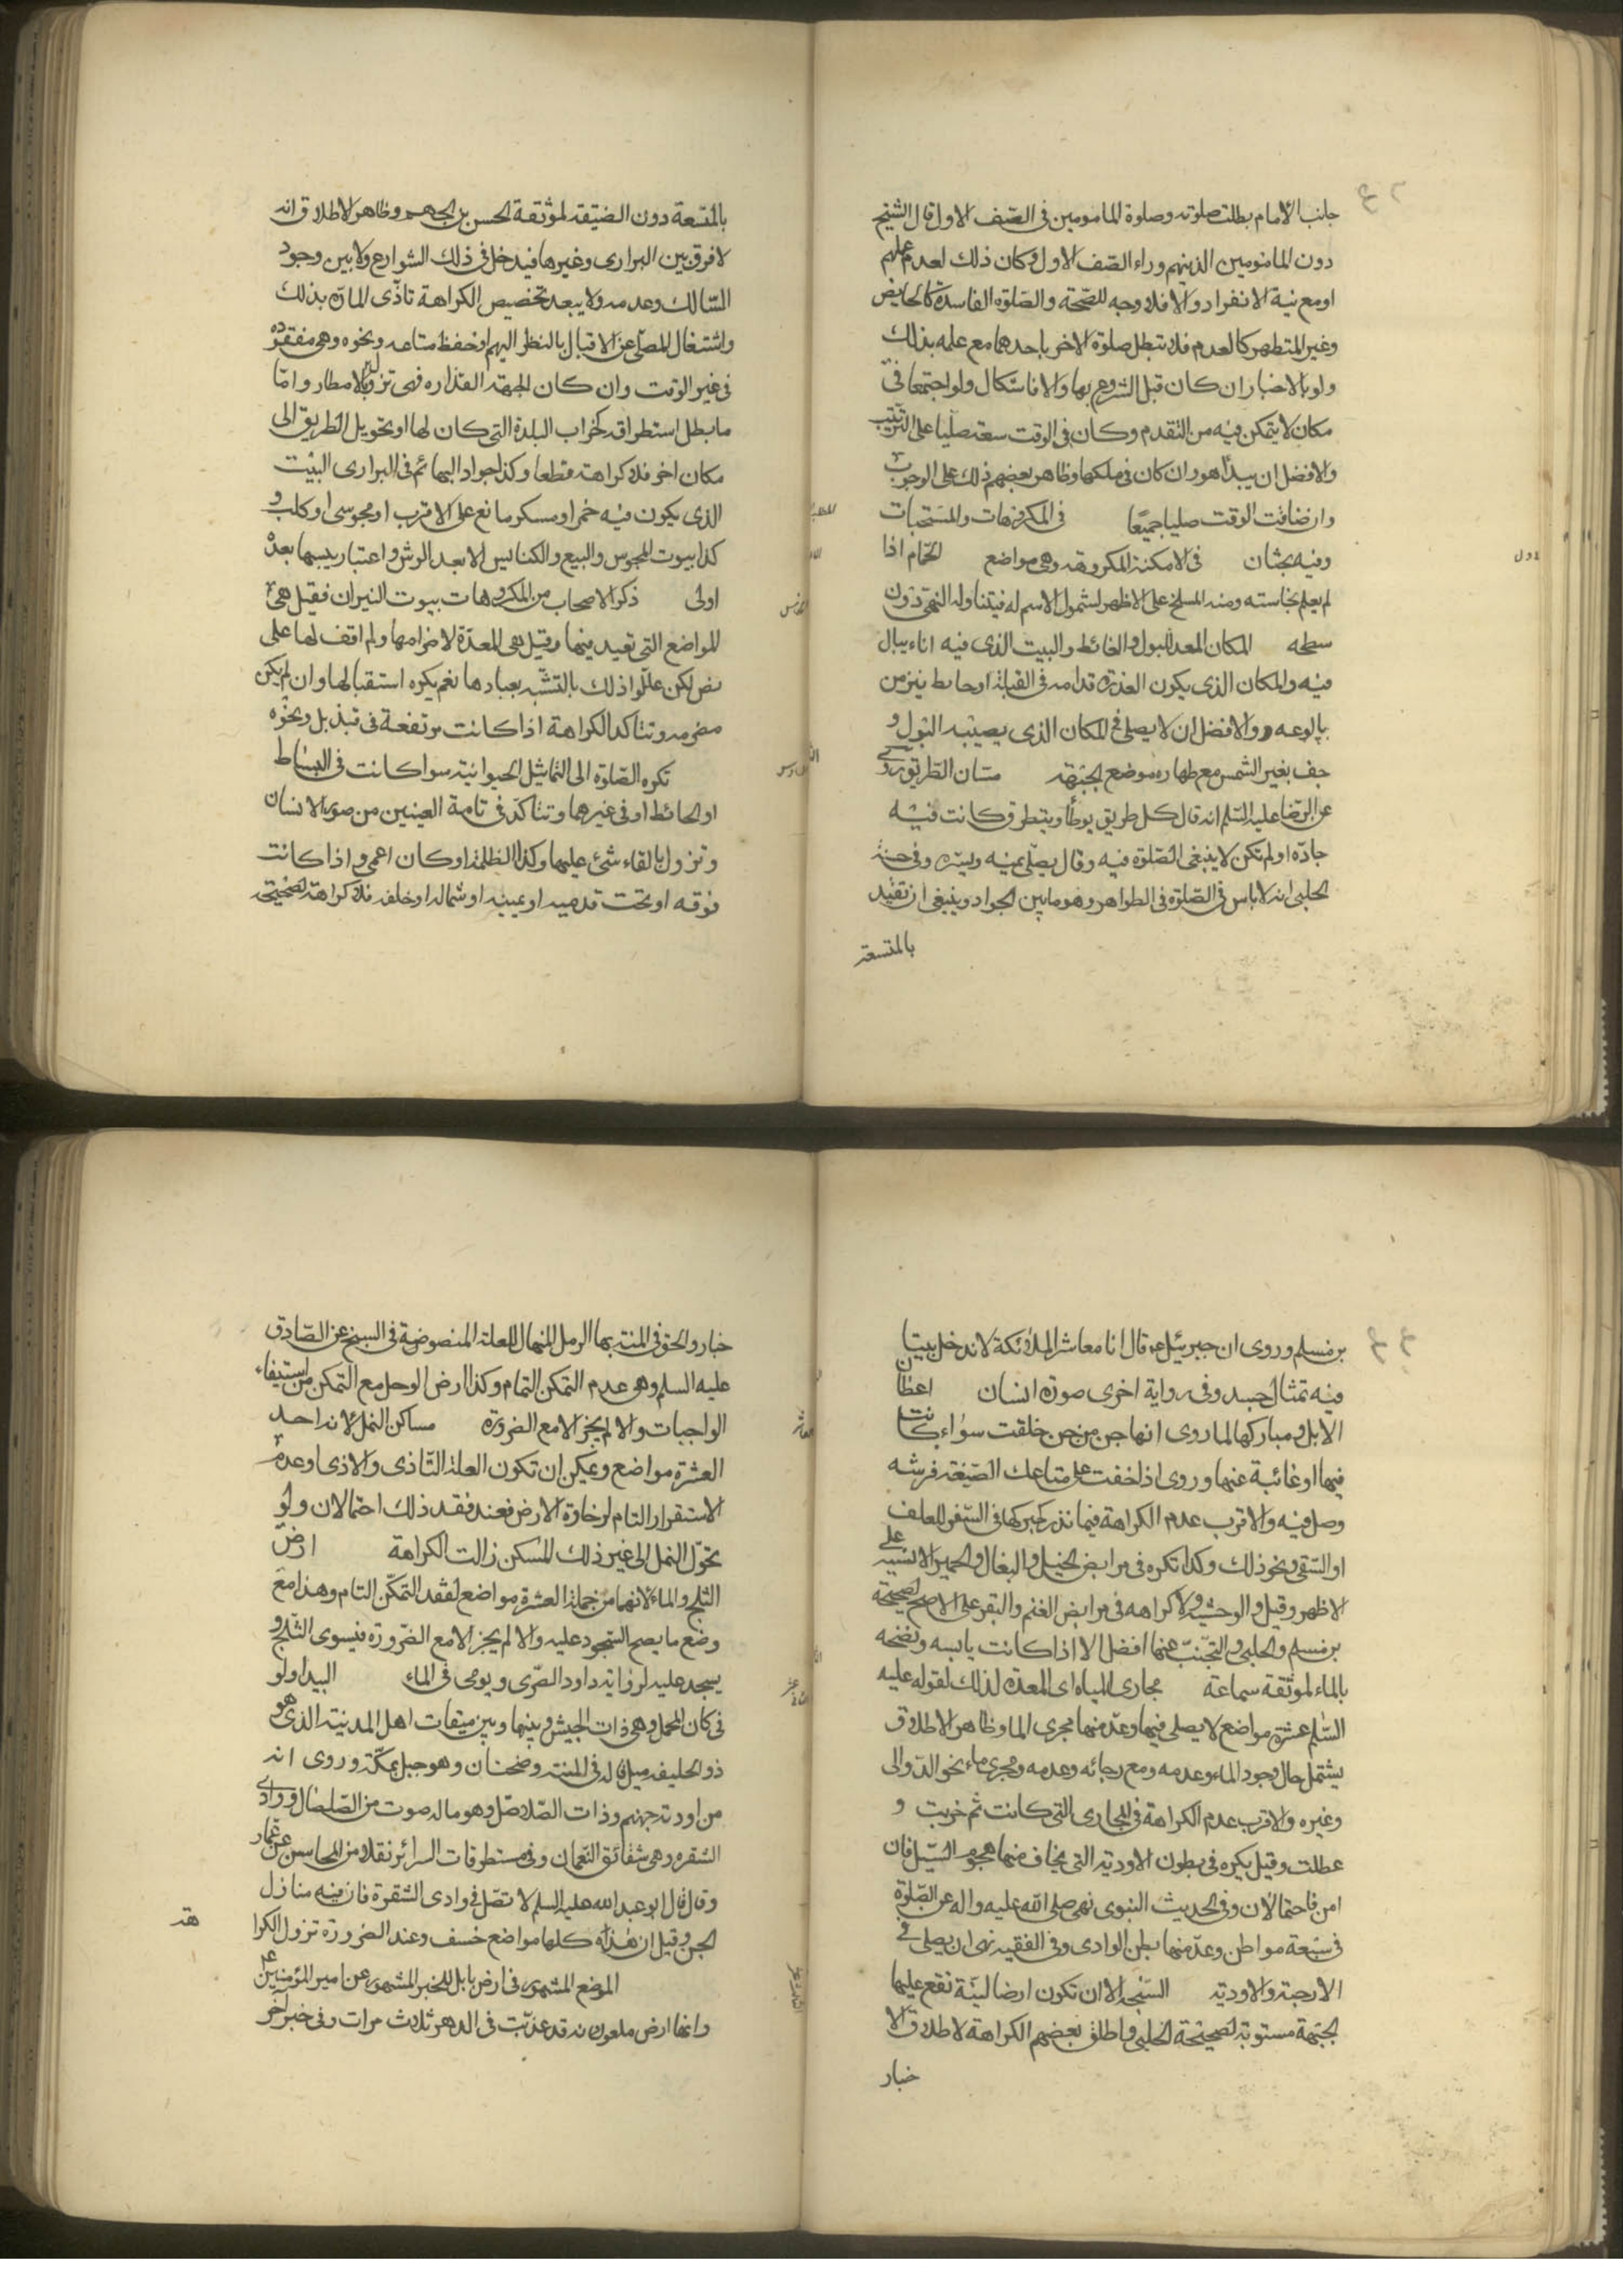 جانب الامام بطلت صلوته وصلوة المامومين في الصف الاول قال الشيخ
دون المامومين الذينهم وراء الصف الاول وكان ذلك لعدم علمهم
او مع نية الانفراد والا فلا وجه للصحة والصلوة الفاسدة كالحايض
وغير المتطهر كالعدم فلا تبطل صلوة الاخر باحدهما مع علمه بذلك
ولو بالاخبار ان كان قبل الشروع بها والا فاشكال ولو اجتمعا في
مكان لا يتمكن فيه من التقدم وكان في الوقت سعة صليا على الترتيب
والافضل ان يبدأ هو وان كان في ملكها وظاهر بعضهم ذلك على الوجوب
وان ضاقت الوقت صليا جميعا في المكروهات والمستحبات
وفيه بحثان في الامكنة المكروهة وهي مواضع الحمام اذا
لم يعلم نجاسته ومنه المسلخ على الاظهر لشمول الاسم له فيتناوله النهي دون
سطحه المكان المعد للبول والغائط والبيت الذي فيه اناء يبال
فيه والمكان الذي يكون العذرة قدامه في القبلة او حايط ينز من
بالوعه والافضل ان لا يصلى في المكان الذي يصيبه البول و
جف بغير الشمس مع طهاره موضع الجبهة مسان الطريق روى
عن الرضا عليه السلم انه قال كل طريق يوطأ ويتطرق كانت فيه
جادة او لم تكن لا ينبغي الصلوة فيه وقال يصلى يمنه ويسره وفي حسنة
الحلبي انه لا باس في الصلوة في الظواهر وهو ما بين الجواد وينبغي ان تقيد
بالمتسعة
بالمتسعة دون الضيقة لموثقة الحسن بن الجهم وظاهر الاطلاق انه
لا فرق بين البراري وغيرها فيدخل في ذلك الشوارع ولا بين وجود
السالك وعدمه ولا يبعد تخصيص الكراهة تاذى المارة بذلك
واشتغال المصلى عن الاقبال بالنظر اليهم او حفظ متاعه ونحوه وهي مفقودة
في غير الوقت وان كان لجهة القذاره فهي تزول بالامطار واما
ما بطل استطراقه كخراب البلدة التي كان لها او تحويل الطريق الى
مكان اخر فلا كراهة قطعا وكذا جواد البهائم في البراري البيت
الذي يكون فيه خمر او مسكر مانع على الاقرب او مجوسى او كلب و
كذا بيوت المجوس والبيع والكنايس الا بعد الرش واعتبار يبسها بعده
اولى ذكر الاصحاب من المكروهات بيوت النيران فقيل هي
المواضع التي تعبد فيها وقيل هي المعدة لاضرامها ولم اقف لها على
نص لكن عللوا ذلك بالتشبه بعبادها نعم يكره استقبالها وان لم يكن
مضرمه وتتاكد الكراهة اذا كانت مرتفعة في قنديل ونحوه
تكره الصلوة الى التماثيل الحيوانية سوا كانت في البساط
او الحائط او في غيرهما وتتاكد في تامة العينين من صور الانسان
وتزول بالقاء شئ عليها وكذا الظلمة او كان اعمى واذا كانت
فوقه او تحت قدميه او يمينه او شماله او خلفه فلا كراهة لصحيحة
بن مسلم وروى ان جبرئيل ع قال انا معاشر الملائكة لا ندخل بيتا
فيه تمثال جسد وفي رواية اخرى صورة انسان اعطان
الابل ومباركها لما روى انها جن من جن خلقت سواء كانت
فيها او غائبة عنها وروى اذا خفت على متاعك الضيعة فرشه
وصل فيه والاقرب عدم الكراهة فيما نذر كبركها في السفر للعلف
او السقي ونحو ذلك وكذا تكره في مرابض الخيل والبغال والحمير الانسيه على
الاظهر وقيل والوحشيه ولا كراهه في مرابض الغنم والبقر على الاصح لصحيحة
بن مسلم والحلبي والتجنب عنها افضل الا اذا كانت يابسه ونضحه
بالماء لموثقة سماعة مجارى المياه اى المعده لذلك لقوله عليه
السلم عشرة مواضع لا يصلى فيها وعد منها مجرى الما وظاهر الاطلاق
يشتمل حال وجود الماء وعدمه ومع رجائه وعدمه ومجرى ماء نحو الدوالى
وغيره والاقرب عدم الكراهة في المجارى التي كانت ثم خربت و
عطلت وقيل يكره في بطون الاودية التي يخاف منها هجوم السيل فان
امن فاحتمالان وفي الحديث النبوى نهى صلى الله عليه واله عن الصلوة
في سبعة مواطن وعد منها بطن الوادى وفي الفقيه نهى ان يصلى في
الارحبة والاودية السبخه الا ان تكون ارضا لينة تقع عليها
الجبهة مستوية لصحيحة الحلبي واطلق بعضهم الكراهة لاطلاق الا
خبار
خبار والحق في المنتهى بها الرمل المنهال للعلة المنصوصة في السبخ عن الصادق
عليه السلم وهو عدم التمكن التمام وكذا ارض الوحل مع التمكن من استيفاء
الواجبات والا لم يجز الا مع الضرورة مساكن النمل لانه احد
العشرة مواضع ويمكن ان تكون العلة التاذى والاذى او عدم
الاستقرار التام لرخاوة الارض فعند فقد ذلك احتمالان ولو
تحول النمل الى غير ذلك المسكن زالت الكراهة ارض
الثلج والماء لانهما من جملة العشرة مواضع لفقد التمكن التام وهذا مع
وضع ما يصح السجود عليه والا لم يجز الا مع الضرورة فيسوى الثلج و
يسجد عليه لرواية داود الصرمى ويومى في الماء البيدا ولو
في كان المحمل وهي ذات الجيش وبينها وبين ميقات اهل المدينة الذي هو
ذو الحليفه ميل قاله في المنتهى وضجنان وهو جبل بمكة وروى انه
من اودية جهنم وذات الصلاصل وهو ماله صوت من الصلصال ووادى
الشقره وهي شقائق النعمان وفي مستطرفات السرائر نقلا من المحاسن عن عمار
وقال قال ابو عبد الله عليه السلم لا تصل في وادى الشقرة فان فيه منازل
الجن وقيل ان هذه كلها مواضع خسف وعند الضرورة تزول الكرا
هة
الموضع المشهور في ارض بابل للخبر المشهور عن امير المؤمنين ع
وانها ارض ملعونه قد عذبت في الدهر ثلاث مرات وفي خبر اخر